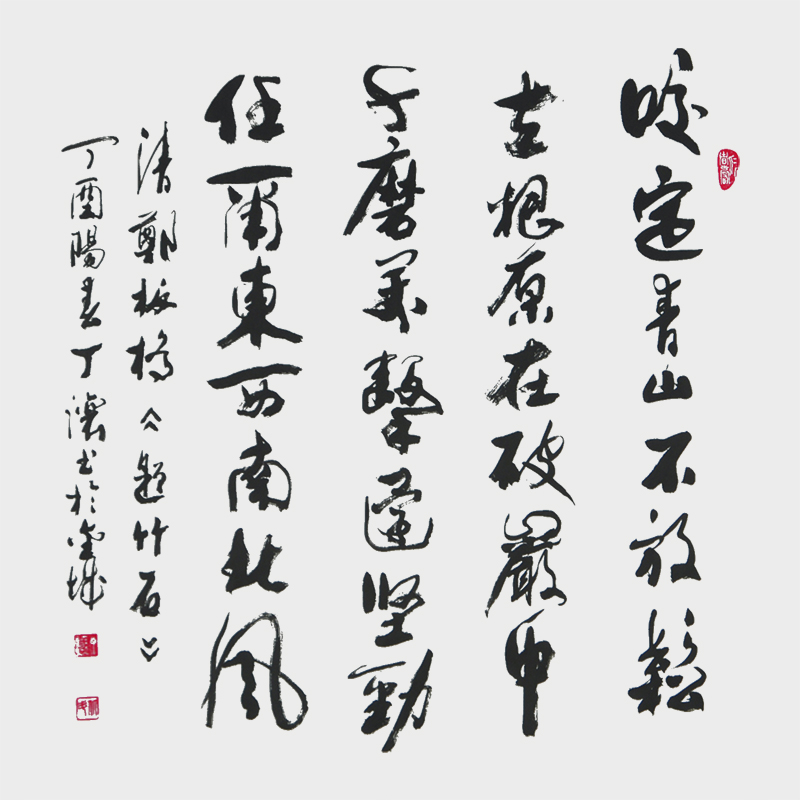 咬定青山不放鬆
立根原在破巖中
千磨萬擊還坚勁
任爾東西南北風
清鄭板橋《題竹石》
丁酉陽春丁書於金城